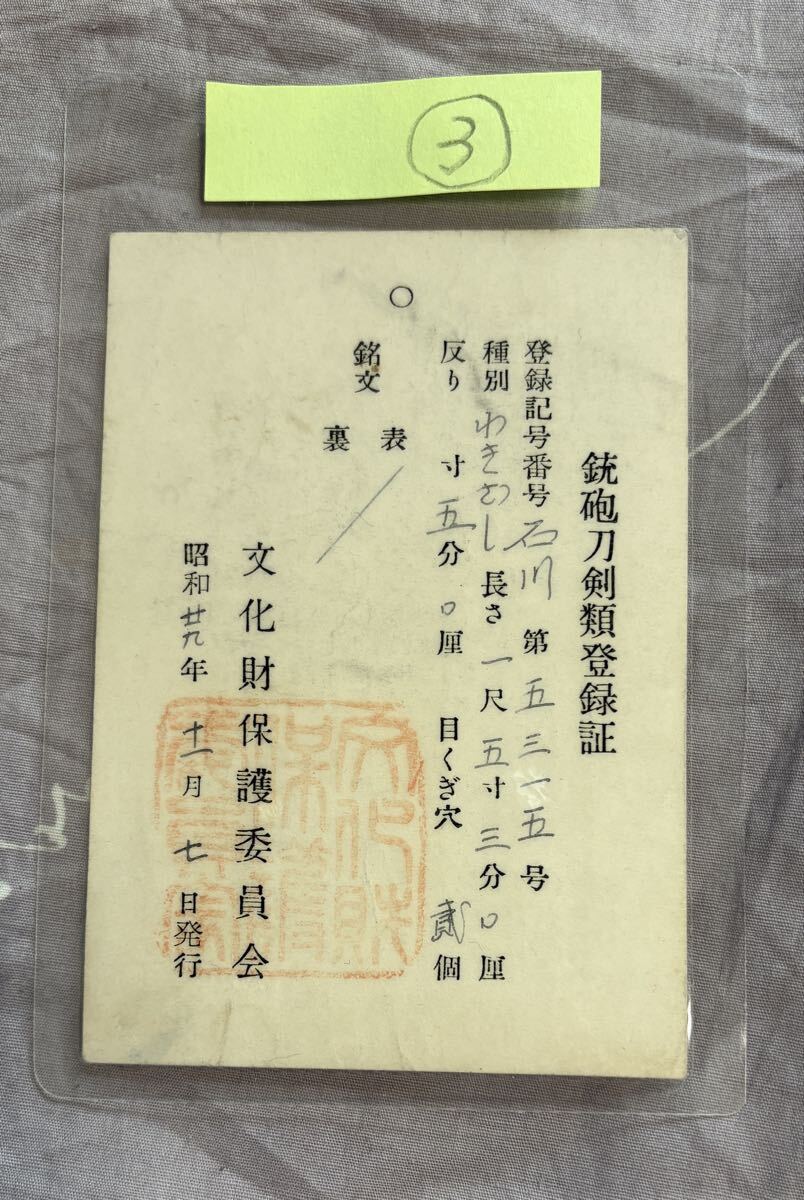 ③
銃砲刀剣類登録証
登録記号番号 石川 第 五三一五 号
種別 わきざし 長さ 一 尺 五 寸 三 分 〇 厘
反り 寸 五 分 〇 厘 目くぎ穴 貳 個
銘文
表
裏
文化財保護委員会
昭和 廿九 年 十一 月 七 日発行